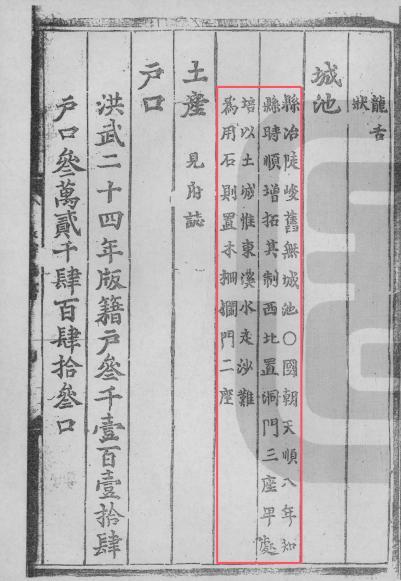 龍舌
狀
城池
縣治陡峻舊無城池〇國朝天順八年知
縣時順增拓其制西北置洞門三座平處
培以土城惟東溪水走沙難
爲用石則置木柵攔門二座
土產 見府誌
戶口
洪武二十四年版籍戶叄千壹百壹拾肆
戶口叄萬貳千肆百肆拾叄口